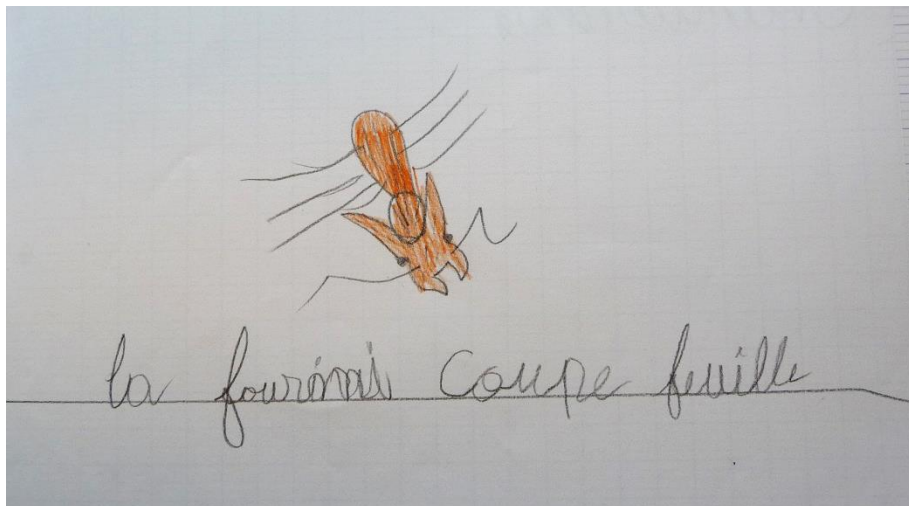 la fourimi coupe feuille